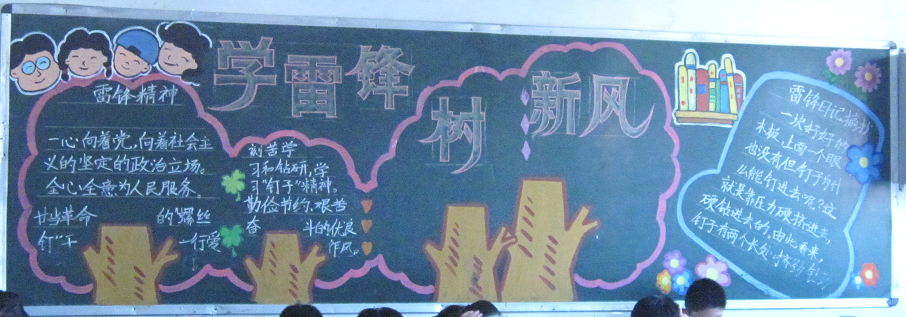 学雷锋
树新风
雷锋精神
一心向着党,向着社会主
义的坚定的政治立场。
全心全意为人民服务。
甘当革命 的"螺丝
钉"干 一行爱
刻苦学
习和钻研,学
习"钉子"精神。
勤俭节约、艰苦
奋 斗的优良
作风。
雷锋日记摘抄
一块好好的
木板,上面一个眼
也没有但钉子为什
么能钉进去呢?这
就是靠压力硬挤进去,
硬钻进去的,由此看来,
钉子有两个长处